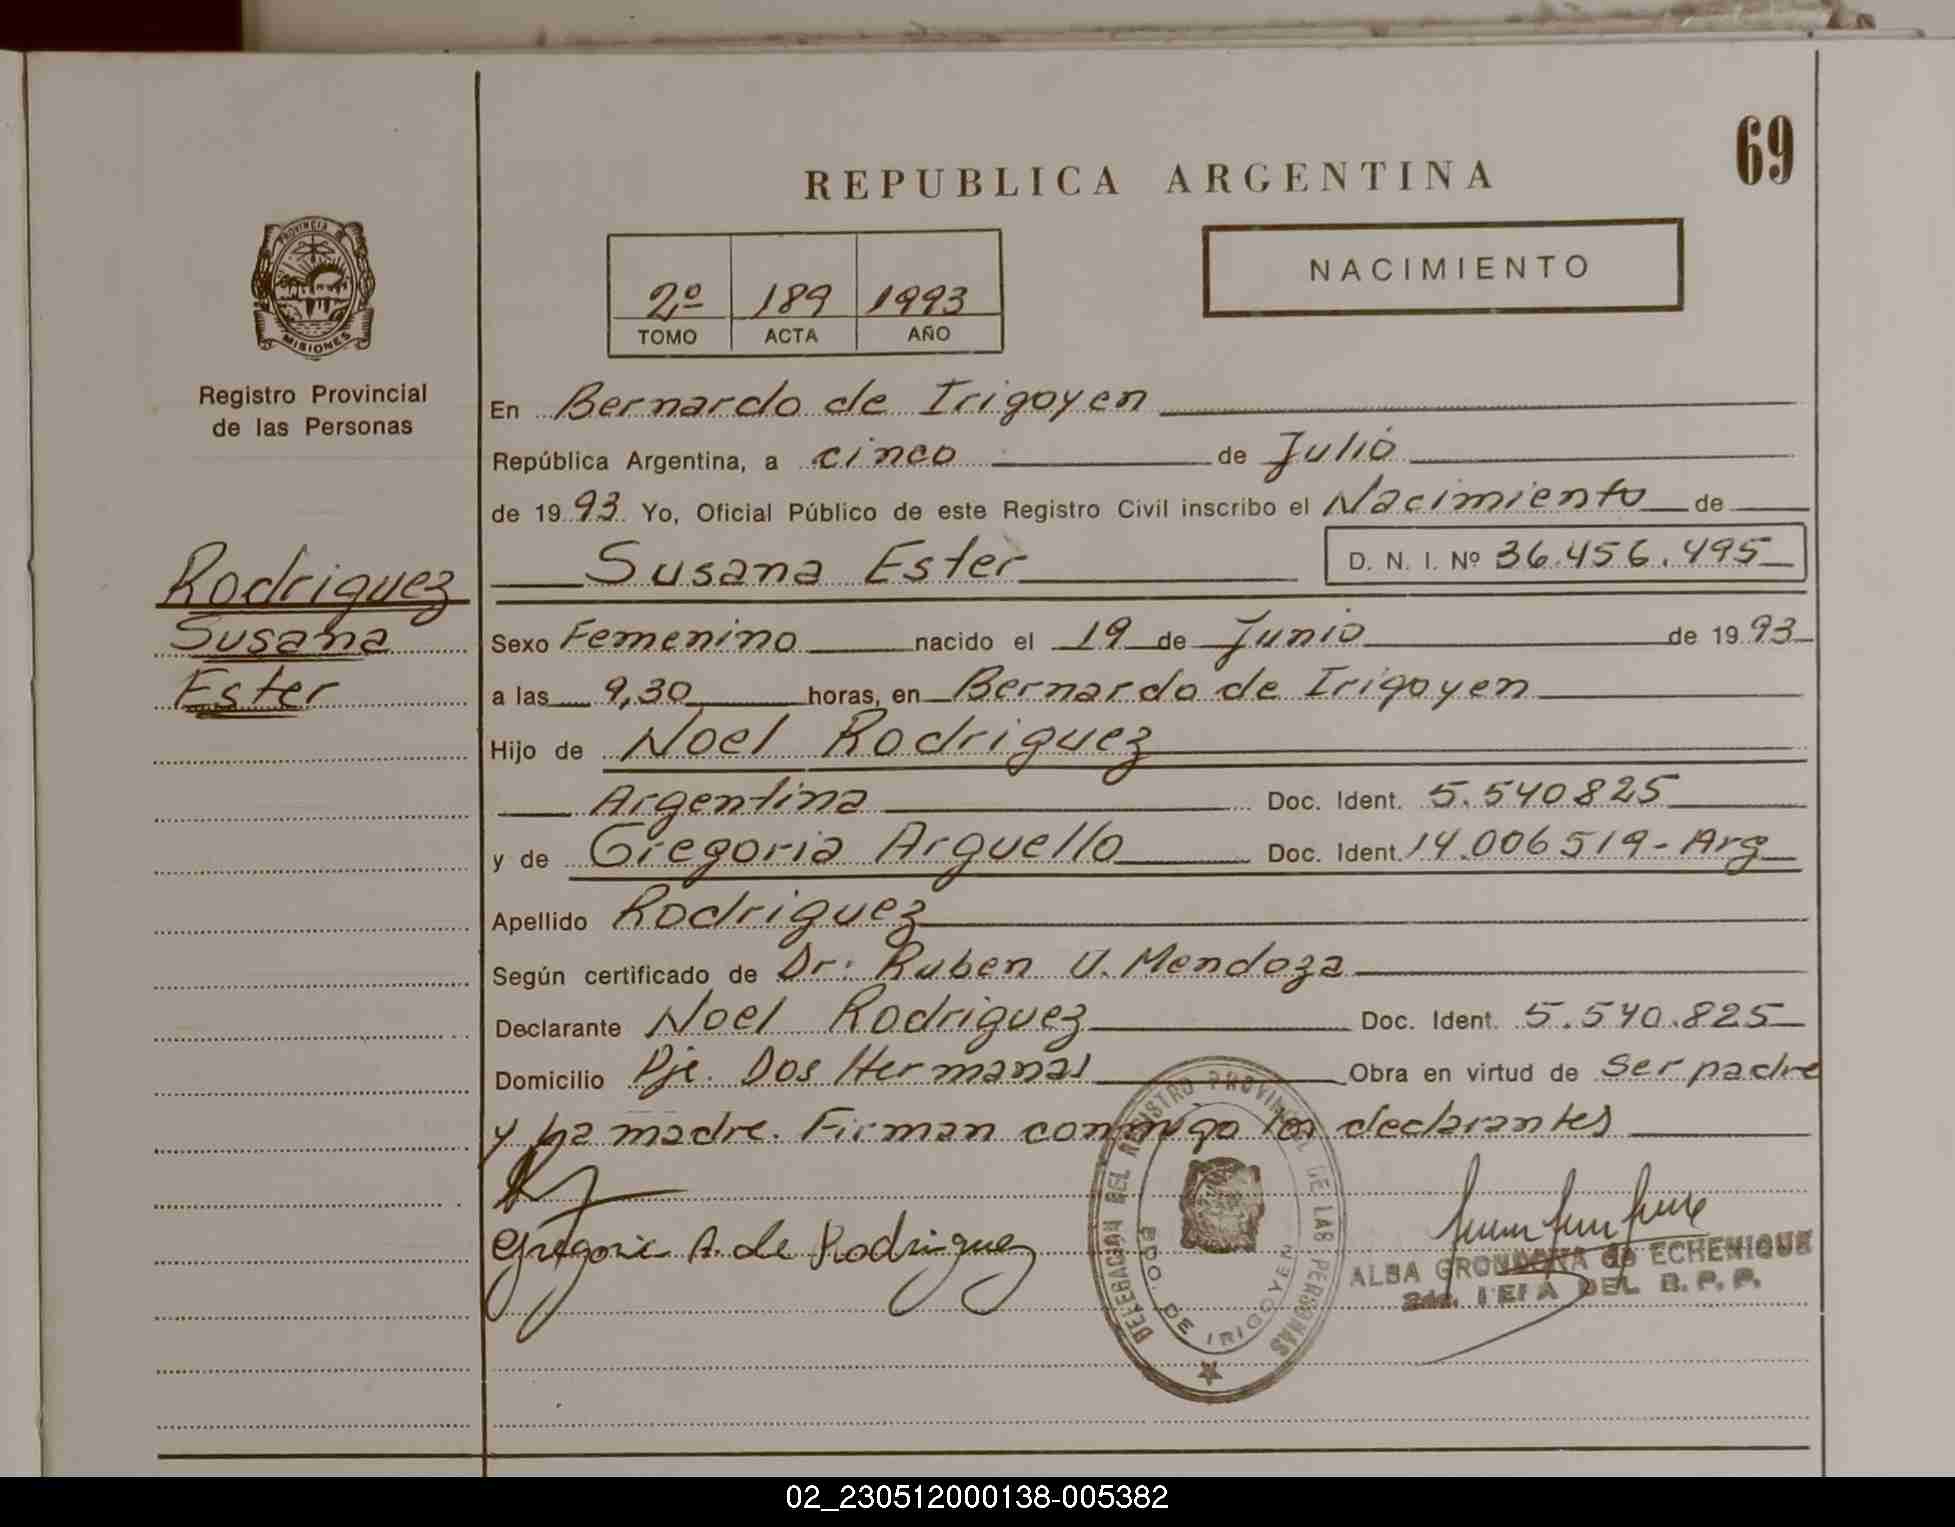 69
REPUBLICA ARGENTINA
PROVINCIA
MISIONES
Registro Provincial
de las Personas
2º 189 1993
TOMO ACTA AÑO
NACIMIENTO
En Bernardo de Irigoyen
República Argentina, a cinco de Julio
de 1993 Yo, Oficial Público de este Registro Civil inscribo el Nacimiento de
Susana Ester D. N. I. Nº 36.456.495
Rodriguez
Susana
Ester
Sexo Femenino nacido el 19 de Junio de 1993
a las 9,30 horas, en Bernardo de Irigoyen
Hijo de Noel Rodriguez
Argentina Doc. Ident. 5.540825
y de Gregoria Arguello Doc. Ident. 14.006519-Arg
Apellido Rodriguez
Según certificado de Dr. Ruben U. Mendoza
Declarante Noel Rodriguez Doc. Ident. 5.540.825
Domicilio Pje. Dos Hermanas Obra en virtud de Ser padre
y la madre. Firman conmigo los declarantes
Gregoria A. de Rodriguez
DELEGACION DEL REGISTRO PROVINCIAL DE LAS PERSONAS
BDO. DE IRIGOYEN
ALBA GRONDONA de ECHENIQUE
2da. JEFA DEL R. P. P.
02_230512000138-005382